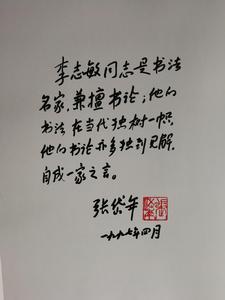 李志敏同志是书法
名家，兼擅书论；他的
书法在当代独树一帜，
他的书论亦多独到见解，
自成一家之言。
张岱年
一九九七年四月